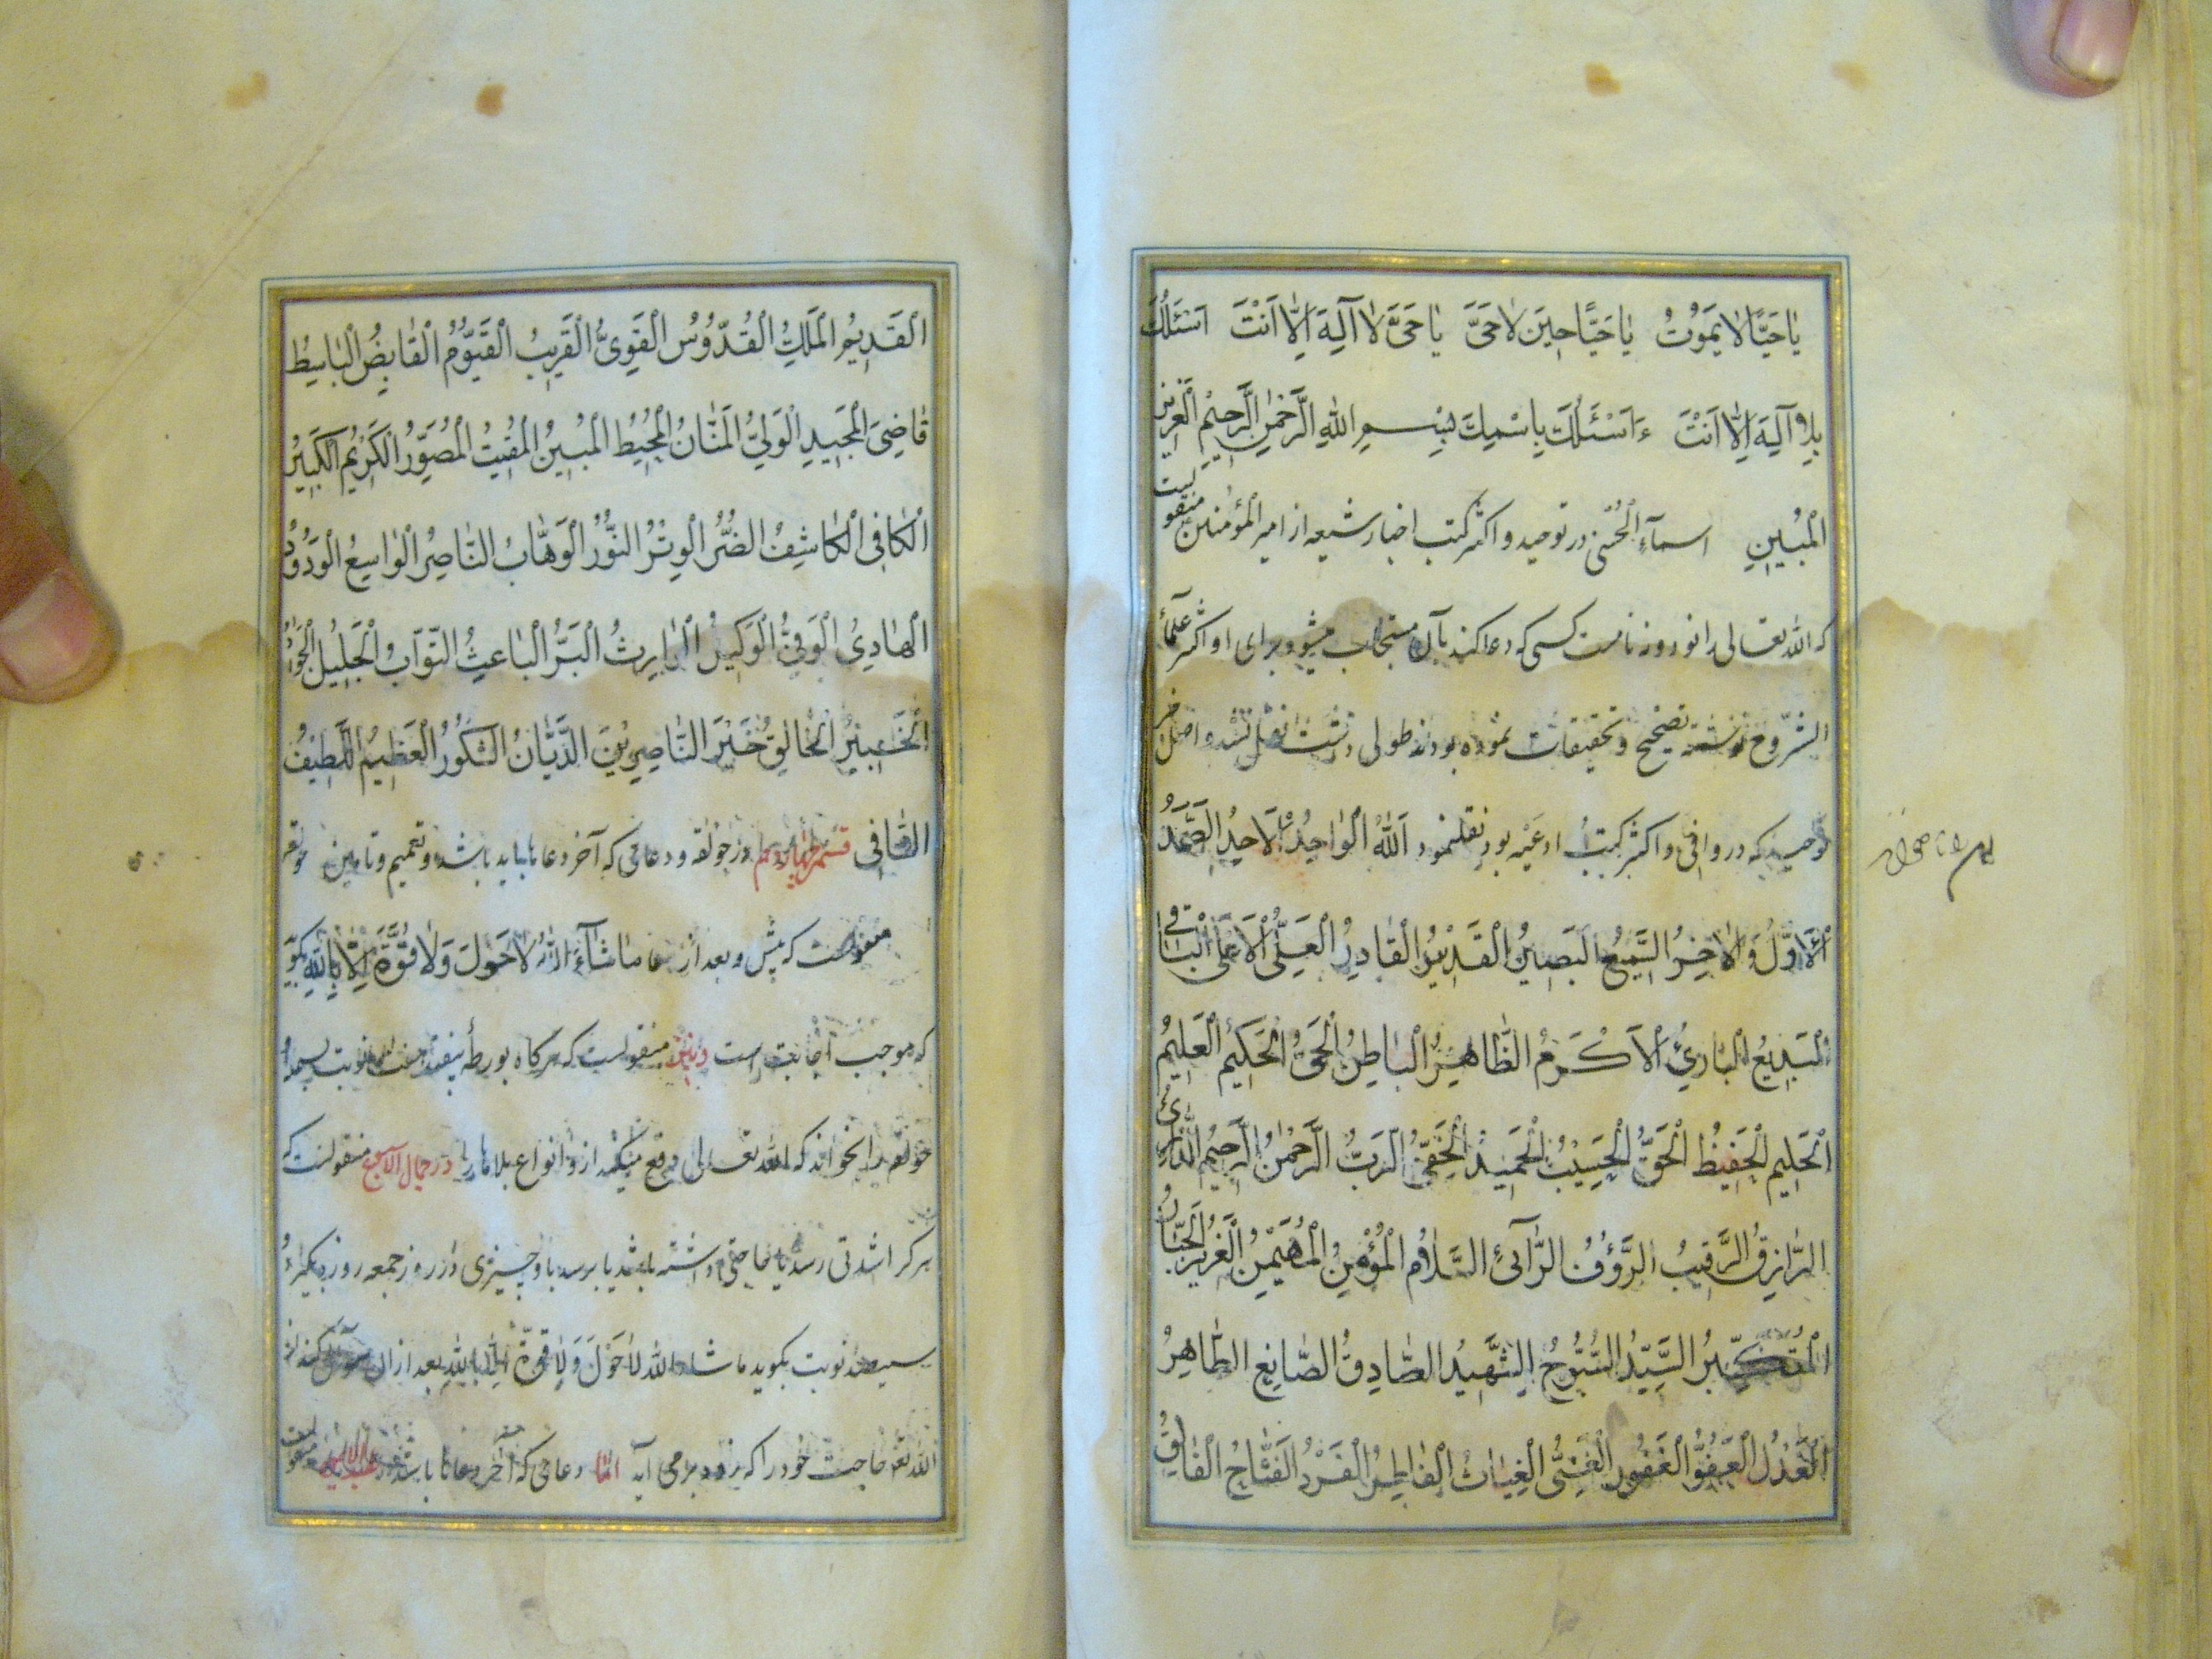 یا حَیًّا لا یَمُوتُ یا حَیًّا حِینَ لا حَیَّ یا حَیَّ لا آلِهَ اِلّا اَنْتَ اَسْئَلُکَ
بِلا آلِهَ اِلّا اَنْتَ ءَاَسْئَلُکَ بِاسْمِکَ بِسْمِ اللهِ الرَّحْمٰنِ الرَّحِیْمِ الْعَزِیزِ
الْمُبِینِ اسمآءِ الْحُسْنی در توحید و اکثر کتب اخبار شیعه از امیر المؤمنین منقولیست
که الله تعالی را نود و نه نامست کسی که دعا کند بآن مستجاب میشود برای او اکثر علمآء
الشروح نوشته تصحیح و تحقیقات نموده بودند طولی داشت نقل نشد و اصل
توحید که در وافی و اکثر کتب ادعیه بود نقلنمود اَللهُ الْواحِدُ الْاَحَدُ الصَّمَدُ
الْاَوَّلُ وَالْاٰخِرُ السَّمِیعُ الْبَصِیرُ الْقَدِیْرُ الْقادِرُ الْعَلِیُّ الْاَعْلَی الْباقی
الْبَدِیعُ الْبارِئُ الْاَکْرَمُ الظّاهِرُ الْباطِنُ الْحَیُّ الْحَکِیمُ الْعَلِیمُ
الْحَلِیم الْحَفِیظُ الْحَقُّ الْحَسِیْبُ الْحَمِیدُ الْحَفِیُّ الرَبُّ الرَّحْمٰنُ الرَّحِیْمُ الذّارِئُ
الرّازِقُ الرَّقِیبُ الرَّؤُفُ الرّآئِ السَّلامُ الْمُؤْمِنُ الْمُهَیْمِنُ الْعَزِیزُ الْجَبّارُ
الْمُتَکَبِّرُ السَّیِّدُ السُبُّوحُ الشَّهِیدُ الصّادِقُ الصّانِعِ الطّاهِرُ
الْعَدْلُ الْعَفُوُّ الْغَفُورِ الْغَنِیُّ الْغِیاثُ الْفاطِرُ الْفَرْدُ الْفَتّاحُ الْفالِقُ
الْقَدِیمُ الْمَلِکُ الْقُدُّوُسُ الْقَوِیُّ الْقَرِیبُ الْقَیُّومُ الْقابِضُ الْباسِطُ
قاضِیَ الْمَجِیدِ الْوَلِیُّ الْمَنّانُ الْمُحِیْطُ الْمُبِیْنُ الْمُقِیْتُ الْمُصَوِّرُ الْکَرِیْمِ الْکَبِیْرُ
الْکافِی الْکاشِفُ الضُّرِّ الْوِتْرُ النُّوْرُ الْوَهّابُ النّاصِرُ الْواسِعُ الْوَدُوُدُ
الْهادِیُ الْوَفِیُّ الْوَکِیلُ الْوارِثُ الْبَرُّ الْباعِثُ التّوّابُ الْجَلِیلُ الْجَوادُ
الْخَبِیْرُ الْخالِقُ خَیْرَ النّاصِرِیْنَ الدَّیّانُ الشَّکُورُ الْعَظِیمُ اللَّطِیْفُ
الشّافی در حولقه و دعائی که آخر دعاها باید باشد و تعمیم و تامین
منقولست که پیش و بعد از دعا ماشآءَ اللهُ لاحَوْلَ وَلا قُوَّةَ اِلّا بِاللهِ بگوید
که موجب اجابت است منقولست که هرگاه بورطه بیفتد نوبت بسمله و
حولقه را بخواند که الله تعالی دفع میکند ازو انواع بلاها را در جمال الاسبوع منقولست که
هر کرا شدتی رسد یا حاجتی داشته باشد یا برسد باو چیزی در روز جمعه روز
سیصد نوبت بگوید ماشاء الله لا حَوْلَ وَ لا قُوَّةَ اِلّا بِاللهِ بعد از ان سؤال کند از
الله تعه حاجت خود را که زود برمی آید امّا دعائی که آخر دعاها باشد